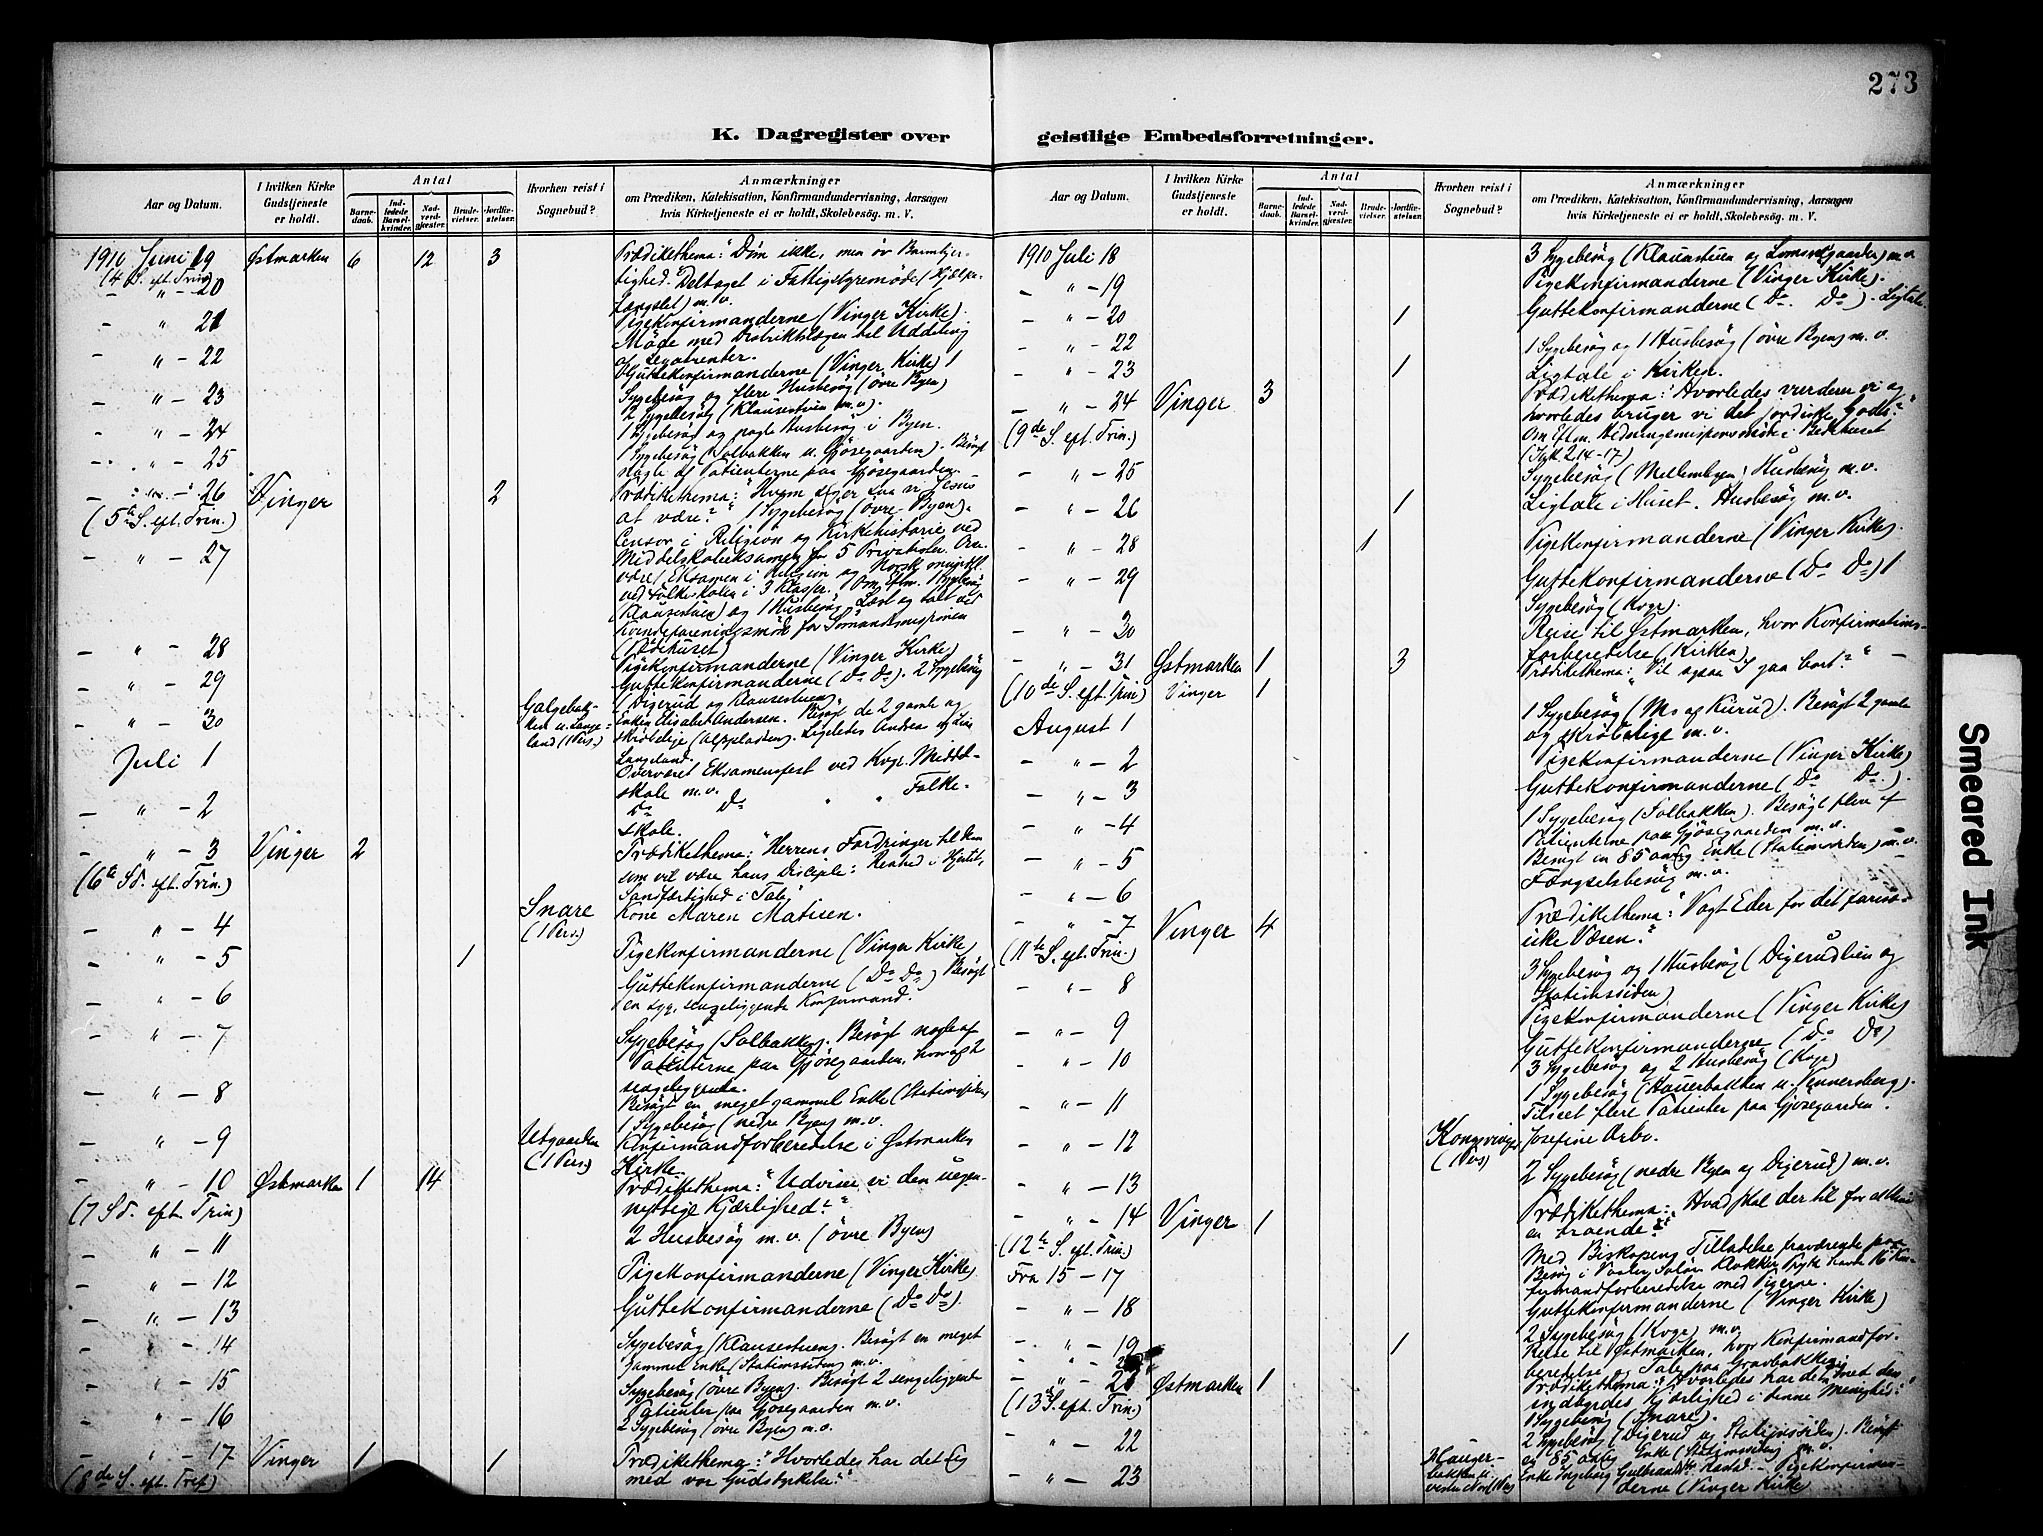 273
K. Dagregister over
geistlige Embedsforretninger.
Aar og Datum.
I hvilken Kirke
Gudstjeneste
er holdt.
Antal
Barne-
daab.
Ind-
ledede
Barsel-
kvinder.
Nad-
verd-
gjæster.
Brude-
vielser.
Jordfæ-
stelser.
Hvorhen reist i
Sognebud?
Anmærkninger
om Prædiken, Katekisation, Konfirmandundervisning, Aarsagen
hvis Kirketjeneste ei er holdt, Skolebesøg. m. V.
1910 Juni 19 Østmarken 6 12 3 Prædikethema: "Døm ikke, men øv Barmhjer-
(4 S. eft. Trin) tighed. Deltaget i Fattigstyremøde (Hjælpe-
— " — 20 m. v.
— " 21 Pigekonfirmanderne (Vinger Kirke).
Møde med Distriktslægen til Uddeling
af Legatrenter.
— " — 22 Guttekonfirmanderne (Vinger Kirke) 1
Sygebesøg og flere Husbesøg (øvre Byen)
— " — 23 2 Sygebesøg (Klauserstuen m.v.).
— " — 24 1 Sygebesøg og nogle Husbesøg i Byen.
— " — 25 1 Sygebesøg (Solbakken u. Gjøsegaarden). Besøgt
nogle af Patienterne paa Gjøsegaarden.
— " — 26 Vinger 2 Prædikethema: "Hvem siger Jesus
(5te S. eft. Trin.) at være?" 1 Sygebesøg (øvre Byen).
— " — 27 Censor i Religion og Kirkehistorie ved
Middelskoleeksamen for 5 Privatister. Over-
været Eksamen i Religion og Norsk
ved Folkeskolen i 3 Klasser. Om Eftm. 1 Sygebesøg
(Klauserstuen) og 1 Husbesøg. Læst og talt ved
Kvindeforeningsmøde for Sømandsmissionen
(Bedehuset)
— " — 28 Pigekonfirmanderne (Vinger Kirke)
— " — 29 Guttekonfirmanderne (Do Do). 2 Sygebesøg
(Digerud og Klauserstuen).
— " — 30 Galgebak-
ken u. Lange-
land (1 Pers.) Enken Elisabet Andersen. Besøgt de 2 gamle og
skrøbelige (Alfpladsen). Ligeledes Andrea
Langeland.
Juli 1 Overværet Eksamensfest ved Kvgr. Middel-
skole m.v.
— " — 2 Do Do " " Folke-
skole.
— " — 3 Vinger 2 Prædikethema: "Herrens Fordringer til den
(6te Sd. eft. Trin.) som vil være hans Disciple: Renhed i Hjertet,
Sandfærdighed i Tale."
— " — 4 Snare
(1 Pers.) Kone Maren Matisen.
— " — 5 1 Pigekonfirmanderne (Vinger Kirke)
— " — 6 Guttekonfirmanderne (Do Do) Besøgt
en syg, sengeliggende Konfirmand.
— " — 7 Sygebesøg (Solbakken). Besøgt nogle af
Patienterne paa Gjøsegaarden, hvoraf 2
sengeliggende.
— " — 8 Besøgt en meget gammel Enke (Stationssiden)
1 Sygebesøg (nedre Byen) m.v.
— " — 9 Utgaarden
(1 Pers.) Konfirmandforberedelse i Østmarken
Kirke.
— " — 10 Østmarken 1 14 Prædikethema: "Udvise vi den uegen-
(7 Sd. eft. Trin) nyttige Kjærlighed?"
— " — 11 2 Husbesøg m.v. (øvre Byen)
— " — 12 Pigekonfirmanderne (Vinger Kirke)
— " — 13 Guttekonfirmanderne (Do Do).
— " — 14 Sygebesøg (Klauserstuen). Besøgt en meget
gammel Enke (Stationssiden) m.v.
— " — 15 Sygebesøg (øvre Byen). Besøgt 2 sengeliggende
Patienter paa Gjøsegaarden m.v.
— " — 16 2 Sygebesøg (øvre Byen) m.v.
— " — 17 Vinger 1 1 Prædikethema: "Hvorledes har det sig
(8de S. eft. Tref) med vor Gudsdyrkelse?"
Aar og Datum.
I hvilken Kirke
Gudstjeneste
er holdt.
Antal
Barne-
daab.
Ind-
ledede
Barsel-
kvinder.
Nad-
verd-
gjæster.
Brude-
vielser.
Jordfæ-
stelser.
Hvorhen reist i
Sognebud?
Anmærkninger
om Prædiken, Katekisation, Konfirmandundervisning, Aarsagen
hvis Kirketjeneste ei er holdt, Skolebesøg. m. V.
1910 Juli 18 3 Sygebesøg (Klauserstuen og ) m.v.
— " — 19 Pigekonfirmanderne (Vinger Kirke).
— " — 20 1 Guttekonfirmanderne (Do. Do). Ligtale
— " — 22 1 Sygebesøg og 1 Husbesøg (øvre Byen) m.v.
— " — 23 1 Ligtale i Kirken.
— " — 24 Vinger 3 Prædikethema: "Hvorledes vurderer vi og
(9de S. eft. Trin.) hvorledes bruger vi det jordiske Gods?"
Om Eftm. Hedningemissionsmøde i Bedehuset
— " — 25 Sygebesøg (Mellembyen) Husbesøg m.v.
— " — 26 1 Ligtale i Huset. Husbesøg m.v.
— " — 28 1 Pigekonfirmanderne (Vinger Kirke).
— " — 29 Guttekonfirmanderne (Do Do) 1
Sygebesøg (Kvgr.)
— " — 30 Reise til Østmarken, hvor Konfirmations-
forberedelse (Kirken)
— " — 31 Østmarken 1 3 Prædikethema: "Vil ogsaa I gaa bort?" —
(10de S. eft. Trin) Vinger 1
August 1 1 Sygebesøg (). Besøgt 2 gamle
og skrøbelige m.v.
— " — 2 Pigekonfirmanderne (Vinger Kirke)
— " — 3 Guttekonfirmanderne (Do Do.).
— " — 4 1 Sygebesøg (Solbakken). Besøgt flere af
Patienterne paa Gjøsegaarden m.v.
— " — 5 Besøgt en 85 aarig Enke (Stationssiden) m.v.
— " — 6 Fængselsbesøg m.v.
— " — 7 Vinger 4 Prædikethema: "Vogt Eder for det farisæ-
(11te S. eft. Trin.) iske Væsen."
— " — 8 3 Sygebesøg og 1 Husbesøg (Digerudlien og
Stationssiden)
— " — 9 Pigekonfirmanderne (Vinger Kirke)
— " — 10 Guttekonfirmanderne (Do Do)
3 Sygebesøg og 2 Husbesøg (Kvgr)
— " — 11 1 Sygebesøg (Hauerbakken u. Vennersberg).
Tilseet flere Patienter paa Gjøsegaarden.
— " — 12 Kongsvinger
(1 Pers) Josefine Arbo.
— " — 13 2 Sygebesøg (nedre Byen og Digerud) m.v.
— " — 14 Vinger 1 Prædikethema: "Hvad skal der til for at blive
(12te S. eft. Trin.) en troende?"
Fra 15 — 17 Med Biskopens Tilladelse fraværende paa
Besøg i Vaaler, Solør. Klokker havde Kon-
firmandforberedelse med Pigerne.
Guttekonfirmanderne (Vinger Kirke)
— " — 18 2 Sygebesøg (Kvgr) m.v.
— " — 19 1 Reise til Østmarken, hvor Konfirmandfor-
beredelse og Tale paa Gravbakken
— " — 20
— " — 21 Østmarken 1 Prædikethema: "Hvorledes har det sig med den
(13 S. eft. Trin.) indbyrdes Kjærlighed i denne Menighed?"
1 Sygebesøg (Snare).
— " — 22 2 Sygebesøg (Digerud og Stationssiden). Besøgt
en 85 aarig Enke (Stationssiden) m.v.
— " — 23 Hauger-
bakken u.
(1 Pers) Enke Ingeborg . — Pigekonfirman-
derne (Vinger Kirke)
Smeared Ink